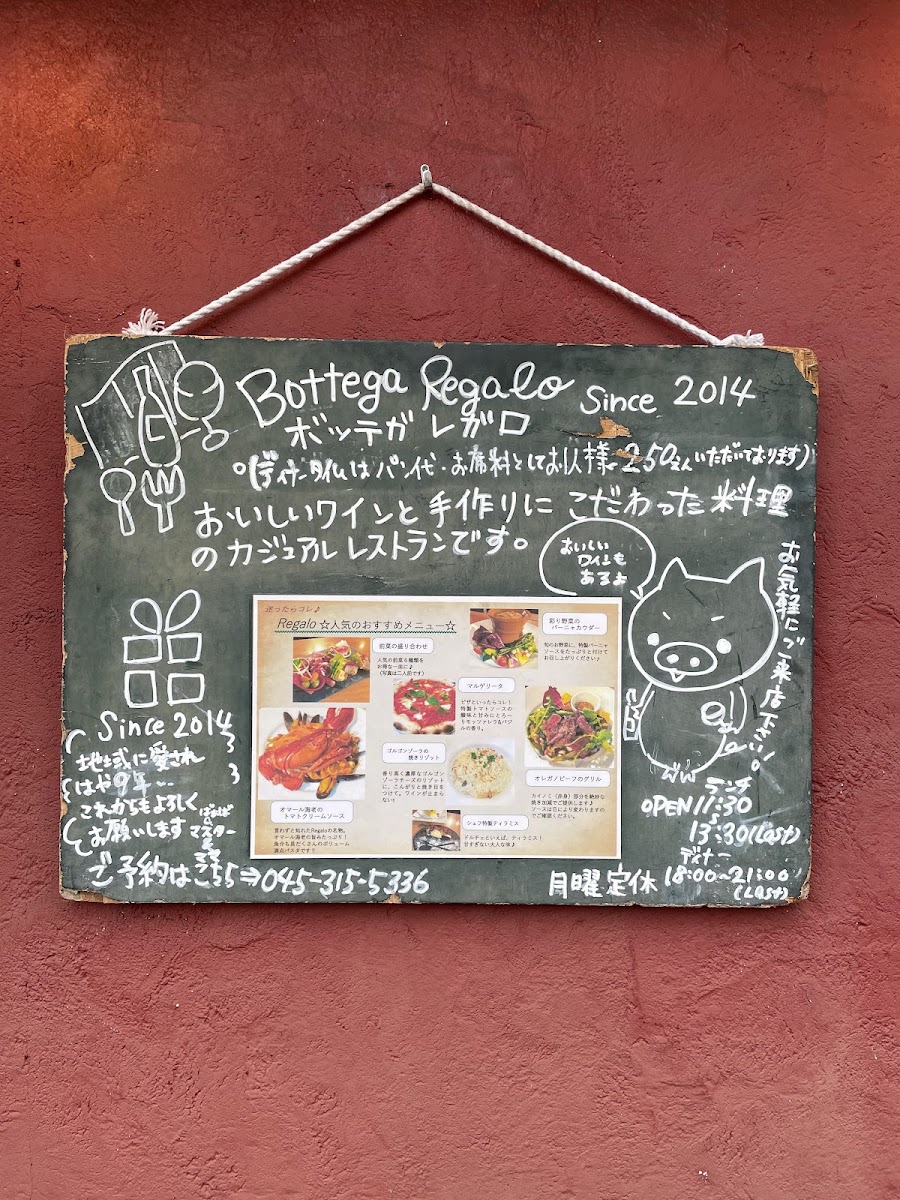 Bottega Regalo Since 2014
ボッテガ レガロ
(ディナータイムはパン代・お席料としてお1人様250えんいただいております)
おいしいワインと手作りにこだわった料理
のカジュアルレストランです。
おいしい
ワインも
あるよ
お気軽にご来店下さい!。
迷ったらコレ♪
Regalo ☆人気のおすすめメニュー☆
前菜の盛り合わせ
人気の前菜6種類を
お得な一皿に♪
(写真は二人前です)
彩り野菜の
バーニャカウダー
旬のお野菜に、特製バーニャ
ソースをたっぷりと付けて
お召し上がりください♪
マルゲリータ
ピザといったらコレ!
特製トマトソースの
酸味と甘みにとろ~
りモッツァレラ&バジ
ルの香り。
ゴルゴンゾーラの
焼きリゾット
香り高く濃厚なゴルゴン
ゾーラチーズのリゾット
に、こんがりと焼き目を
つけて。ワインが止まら
ない!
オレガノビーフのグリル
カイノミ(赤身)部分を絶妙な
焼き加減でご提供します♪
ソースは日により変わりますの
でご確認ください。
オマール海老の
トマトクリームソース
言わずと知れたRegaloの名物。
オマール海老の旨みたっぷり!
魚介も具だくさんのボリューム
満点パスタです!!
シェフ特製ティラミス
ドルチェといえば、ティラミス!
甘すぎない大人な味♪
Since 2014
地域に愛され
はや9年…
これからもよろしく
お願いします
マスター
&
ママ
ご予約はこちら⇒045-315-5336
ランチ
OPEN 11:30
~
13:30(Last)
ディナー
月曜定休 18:00~21:00
(Last)